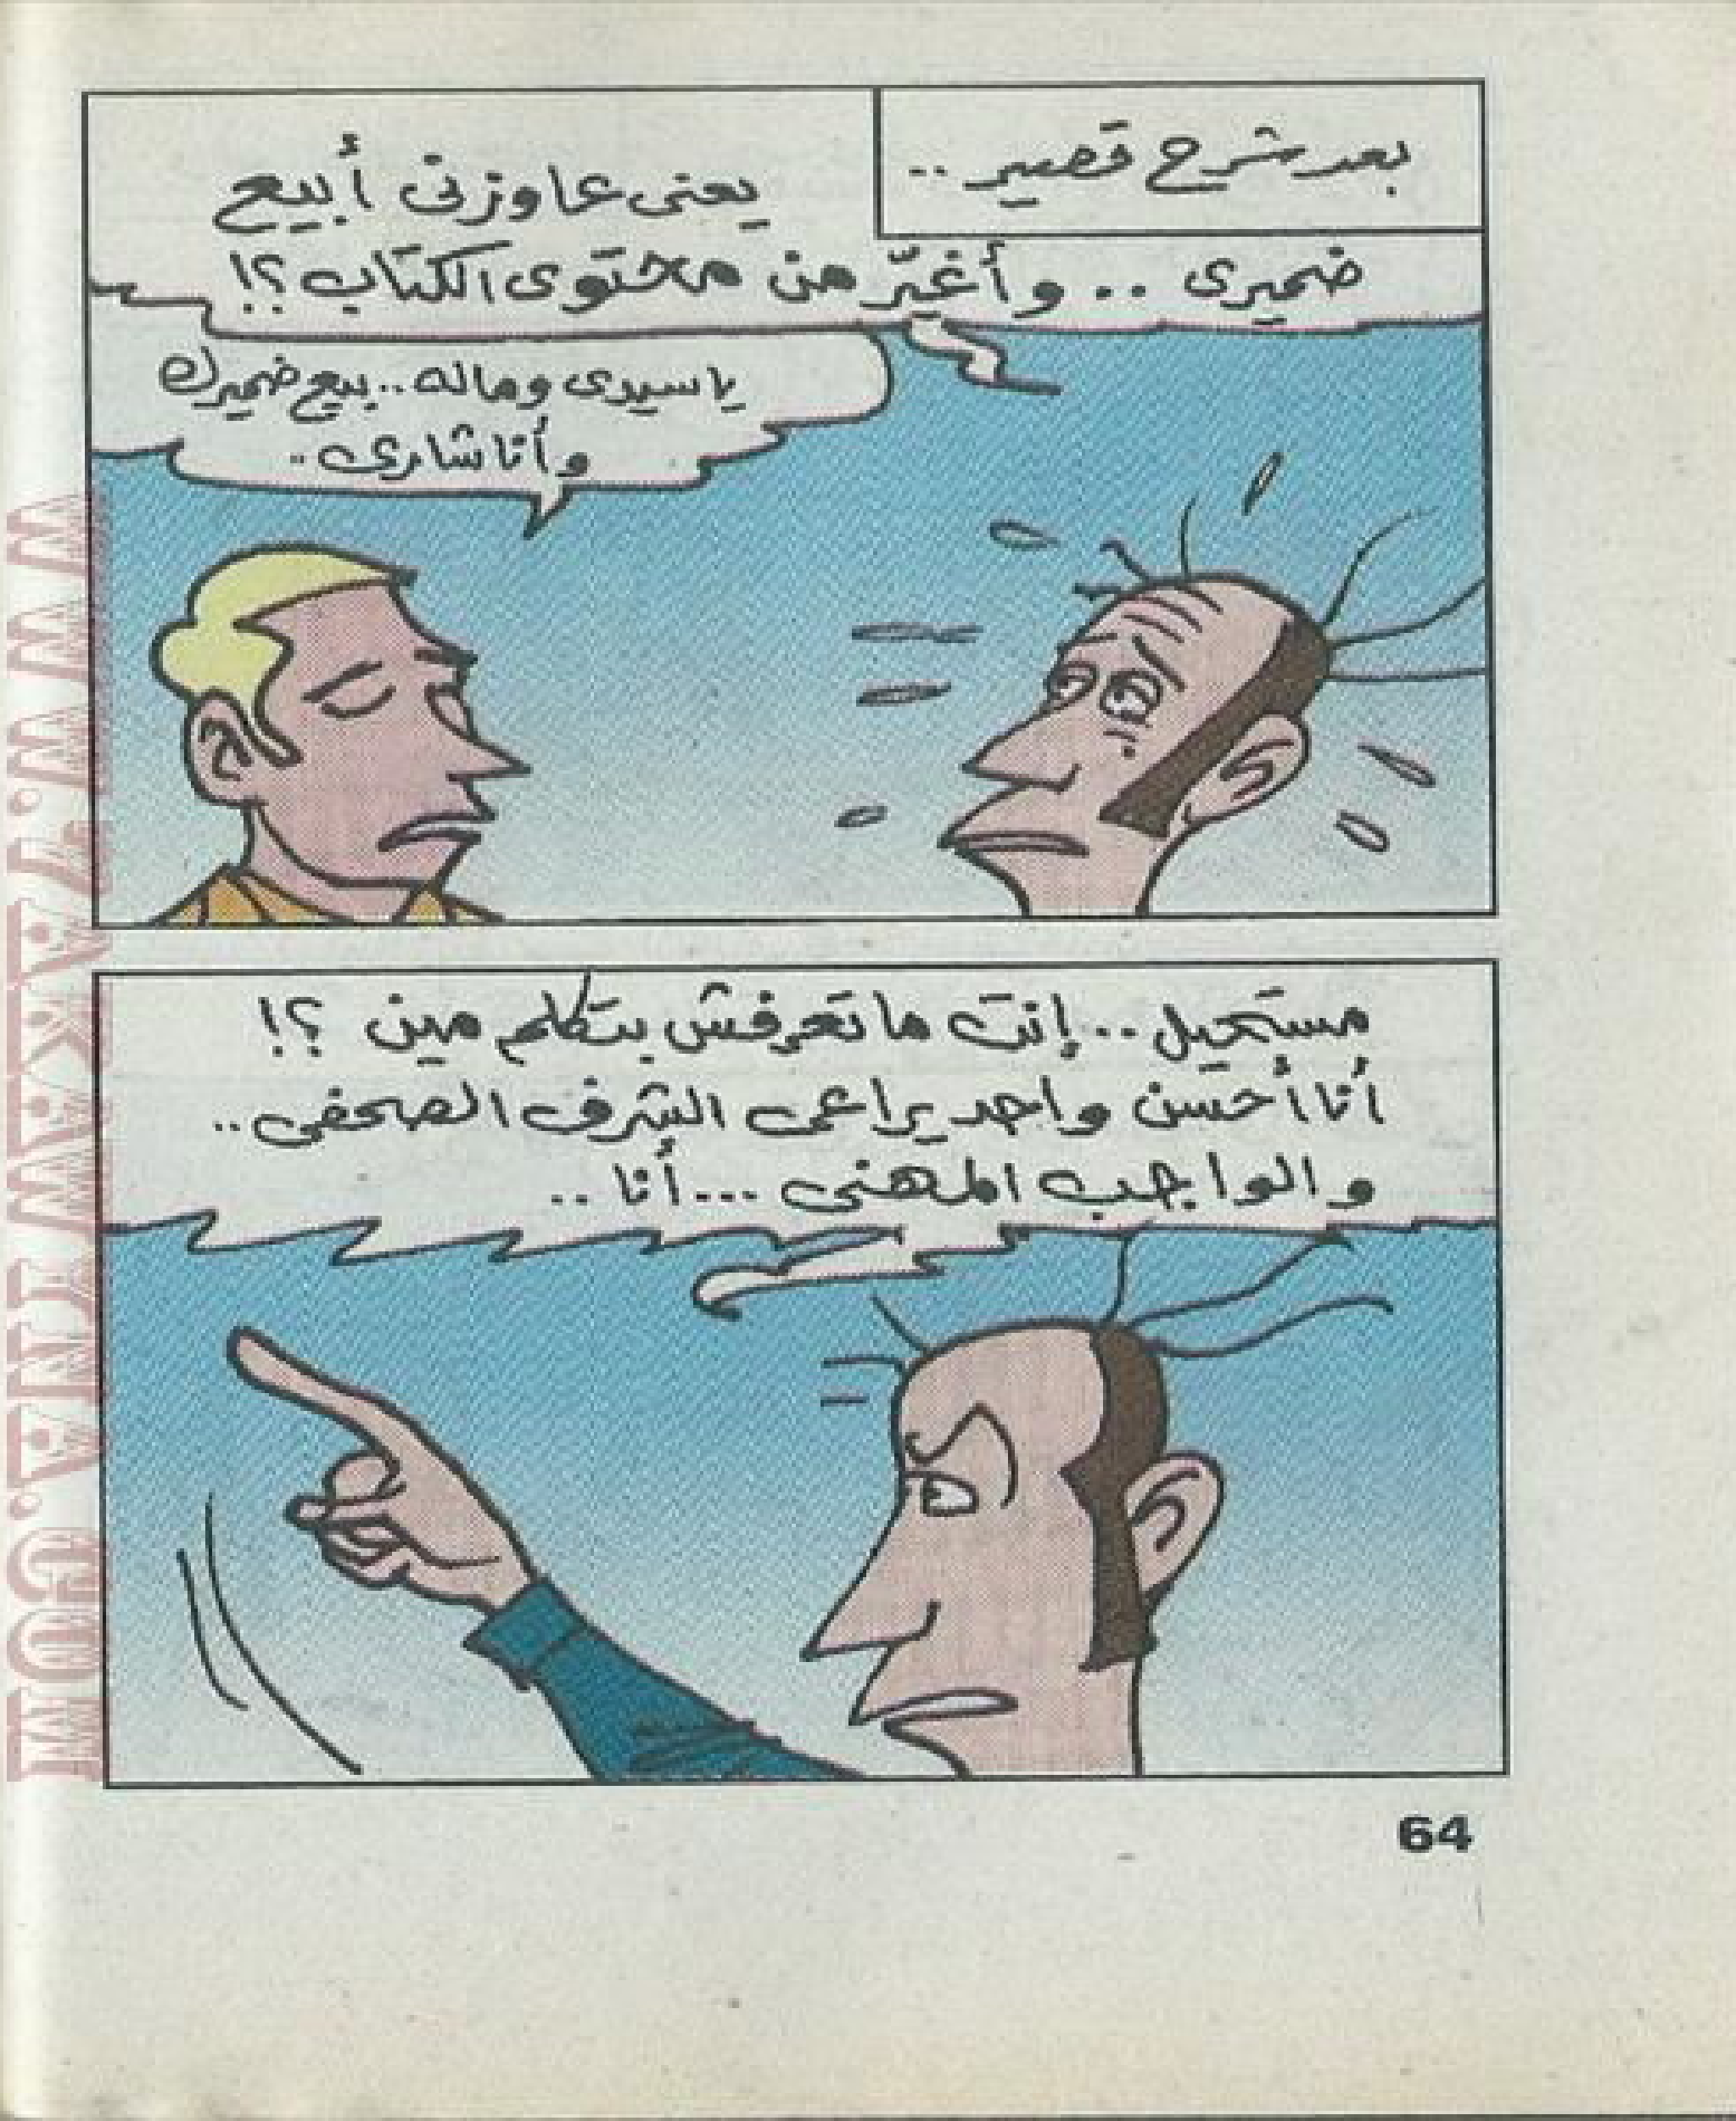 بعد شرح قصير ..
يعنى عاوزنى أبيع
ضميرى .. وأغيّر من محتوى الكتاب ؟!
ياسيدى وماله .. بيع ضميرك
وأنا شارى ..
مستحيل .. إنت ماتعرفش بتكلم مين ؟!
أنا أحسن واحد يراعى الشرف الصحفى ..
والواجب المهنى ... أنا ..
64